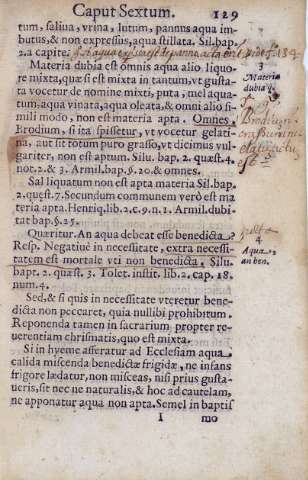 Caput Sextum. 129
tum, saliua, vrina, lutum, pannus aqua im-
butus, & non expressus, aqua stillata. Sil. bap.
2. a capite.
Materia dubia est omnis aqua alio. liquo-
re mixta, quæ si est mixta in tantum, vt gusta-
ta vocetur de nomine mixti, puta, mel aqua-
tum, aqua vinata, aqua oleata, & omni alio si-
mili modo, non est materia apta. Omnes.
Brodium, si ita spissetur, vt vocetur gelati-
na, aut sit totum puro grasso, vt dicimus vul-
gariter, non est aptum. Silu. bap. 2. quæst. 4.
not. 2. & 3. Armil. bap. §. 20. & omnes.
Sal liquatum non est apta materia Sil. bap.
2. quęst. 7. Secundum communem verò est ma-
teria apta. Henriq. lib. 2. c. 9. n. 1. Armil. dubi-
tat bap. §. 25.
Quæritur. An aqua debeat esse benedicta?
Resp. Negatiuè in necessitate, extra necessi-
tatem est mortale vti non benedicta. Silu.
bapt. 2. quæst. 3. Tolet. instit. lib. 2. cap. 18.
num. 4.
Sed, & si quis in necessitate vteretur bene-
dicta non peccaret, quia nullibi prohibitum.
Reponenda tamen in sacrarium propter re-
uerentiam chrismatis, quo est mixta.
Si in hyeme afferatur ad Ecclesiam aqua
calida miscenda benedictæ frigidæ, ne infans
frigore lædatur, non misceas, nisi prius gusta-
ueris, sit nec ne naturalis, & hoc ad cautelam,
ne apponatur aqua non apta. Semel in baptis
I mo
3
Materia
dubia q.
Brodium
4
Aqua
an ben.